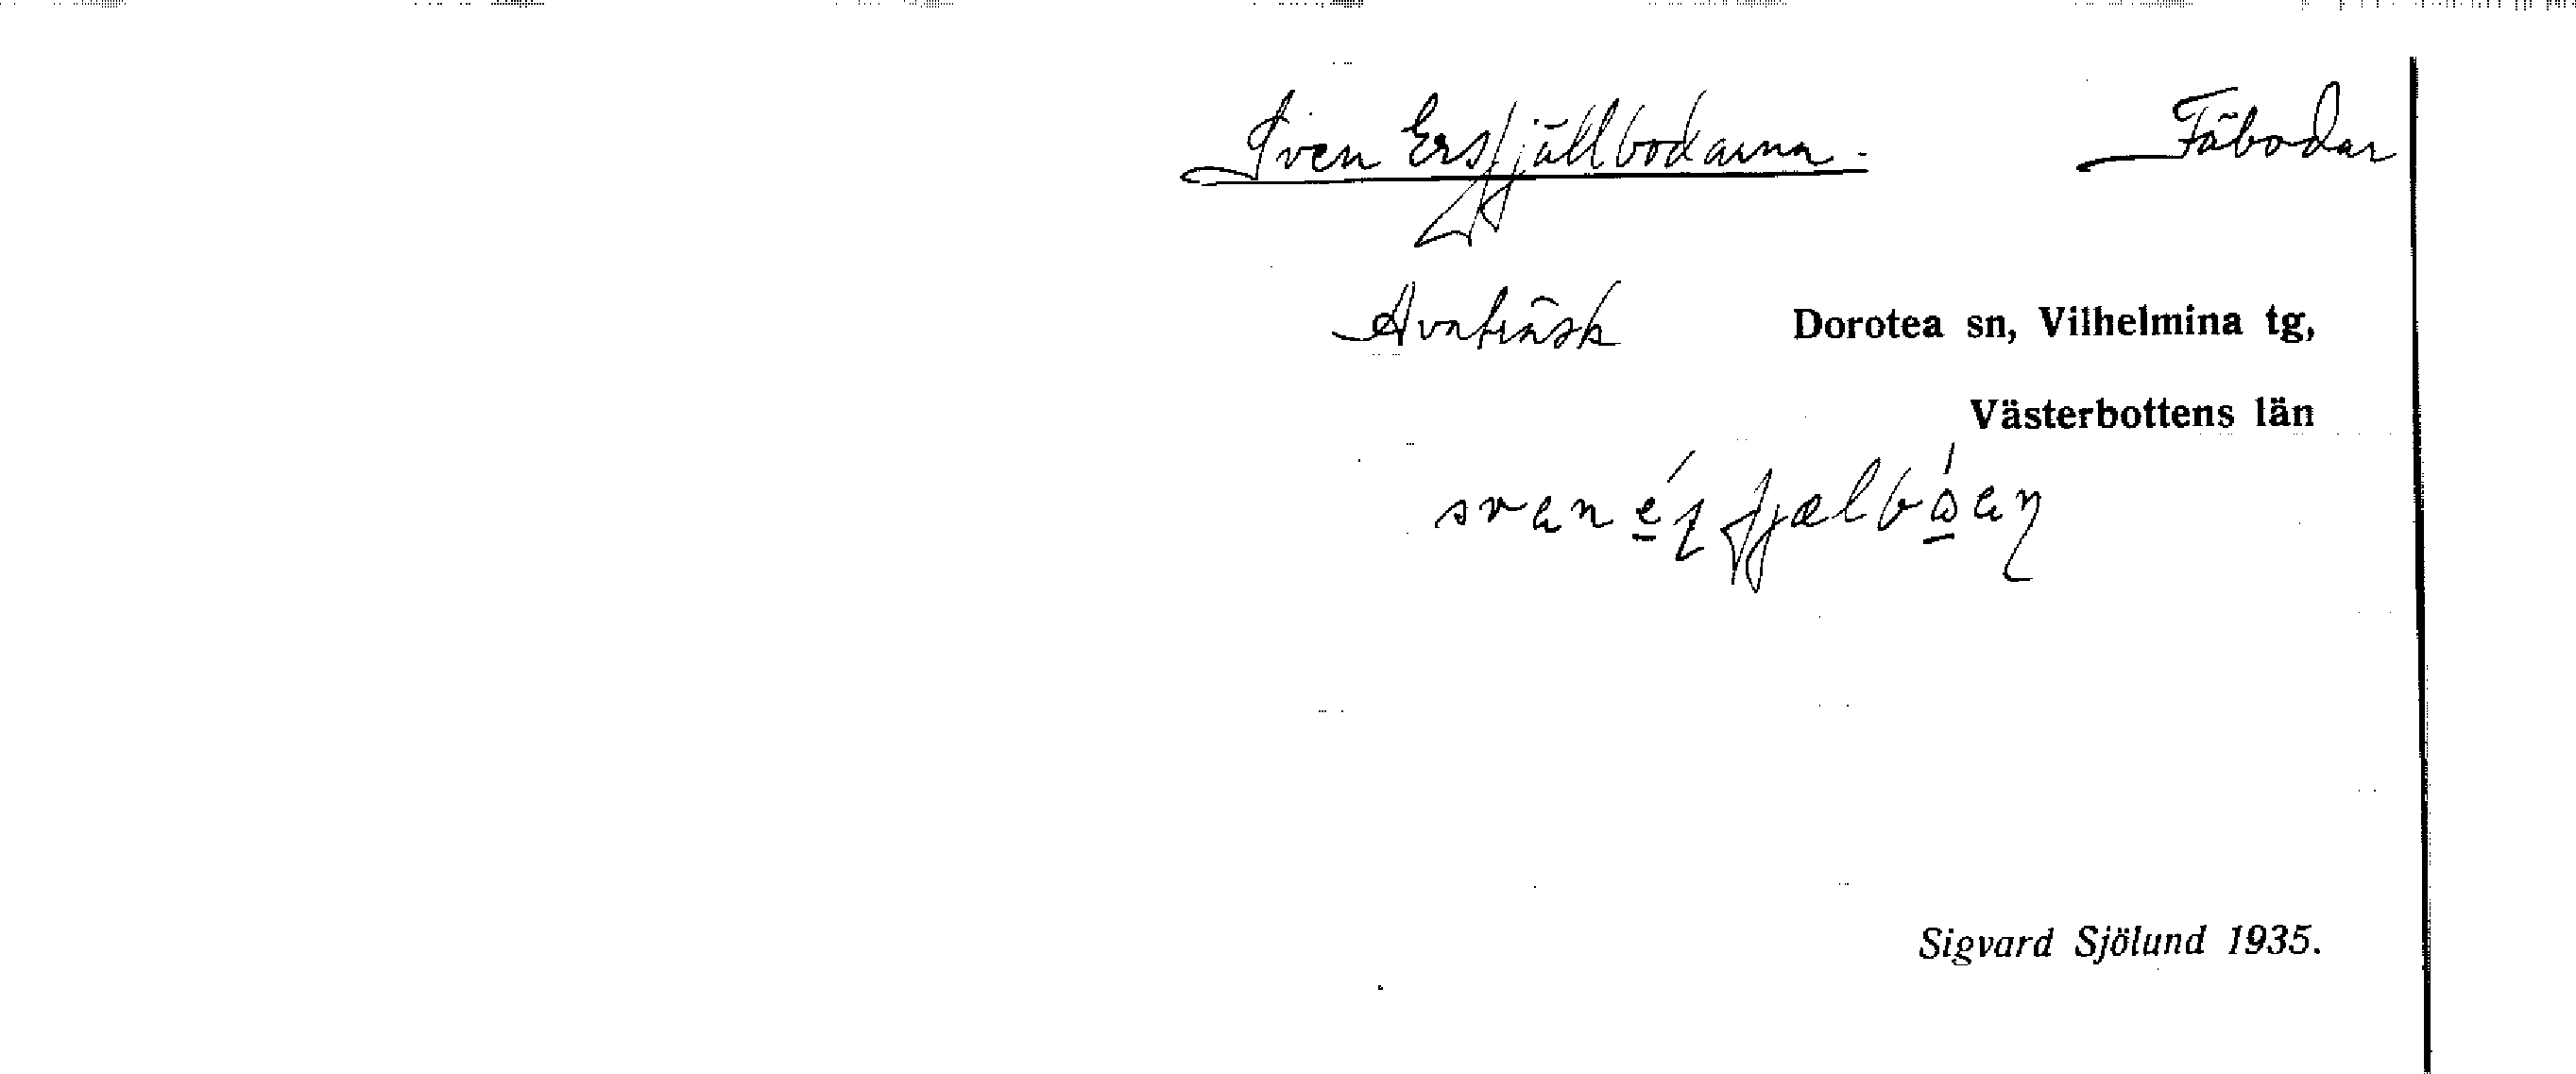 Sven Ersfjällbodarna. Fäbodar
Avaträsk Dorotea sn, Vilhelmina tg,
Västerbottens län
Sigvard Sjölund 1935.